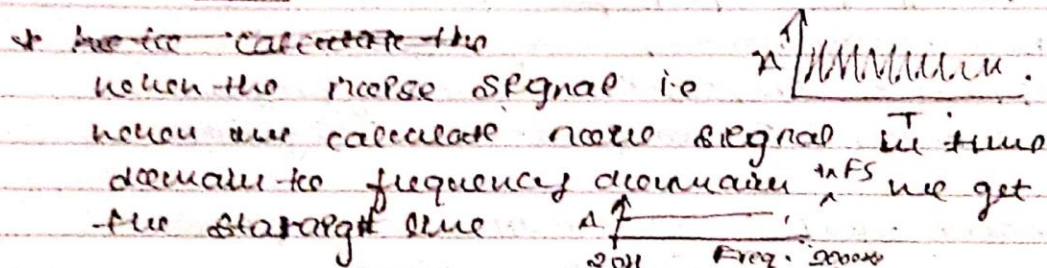 * we to calculate the
when the noise signal i.e A
when we calculate noise signal in time T
domain to frequency domain in FS we get
the staraight line A 20H Freq. 20000H